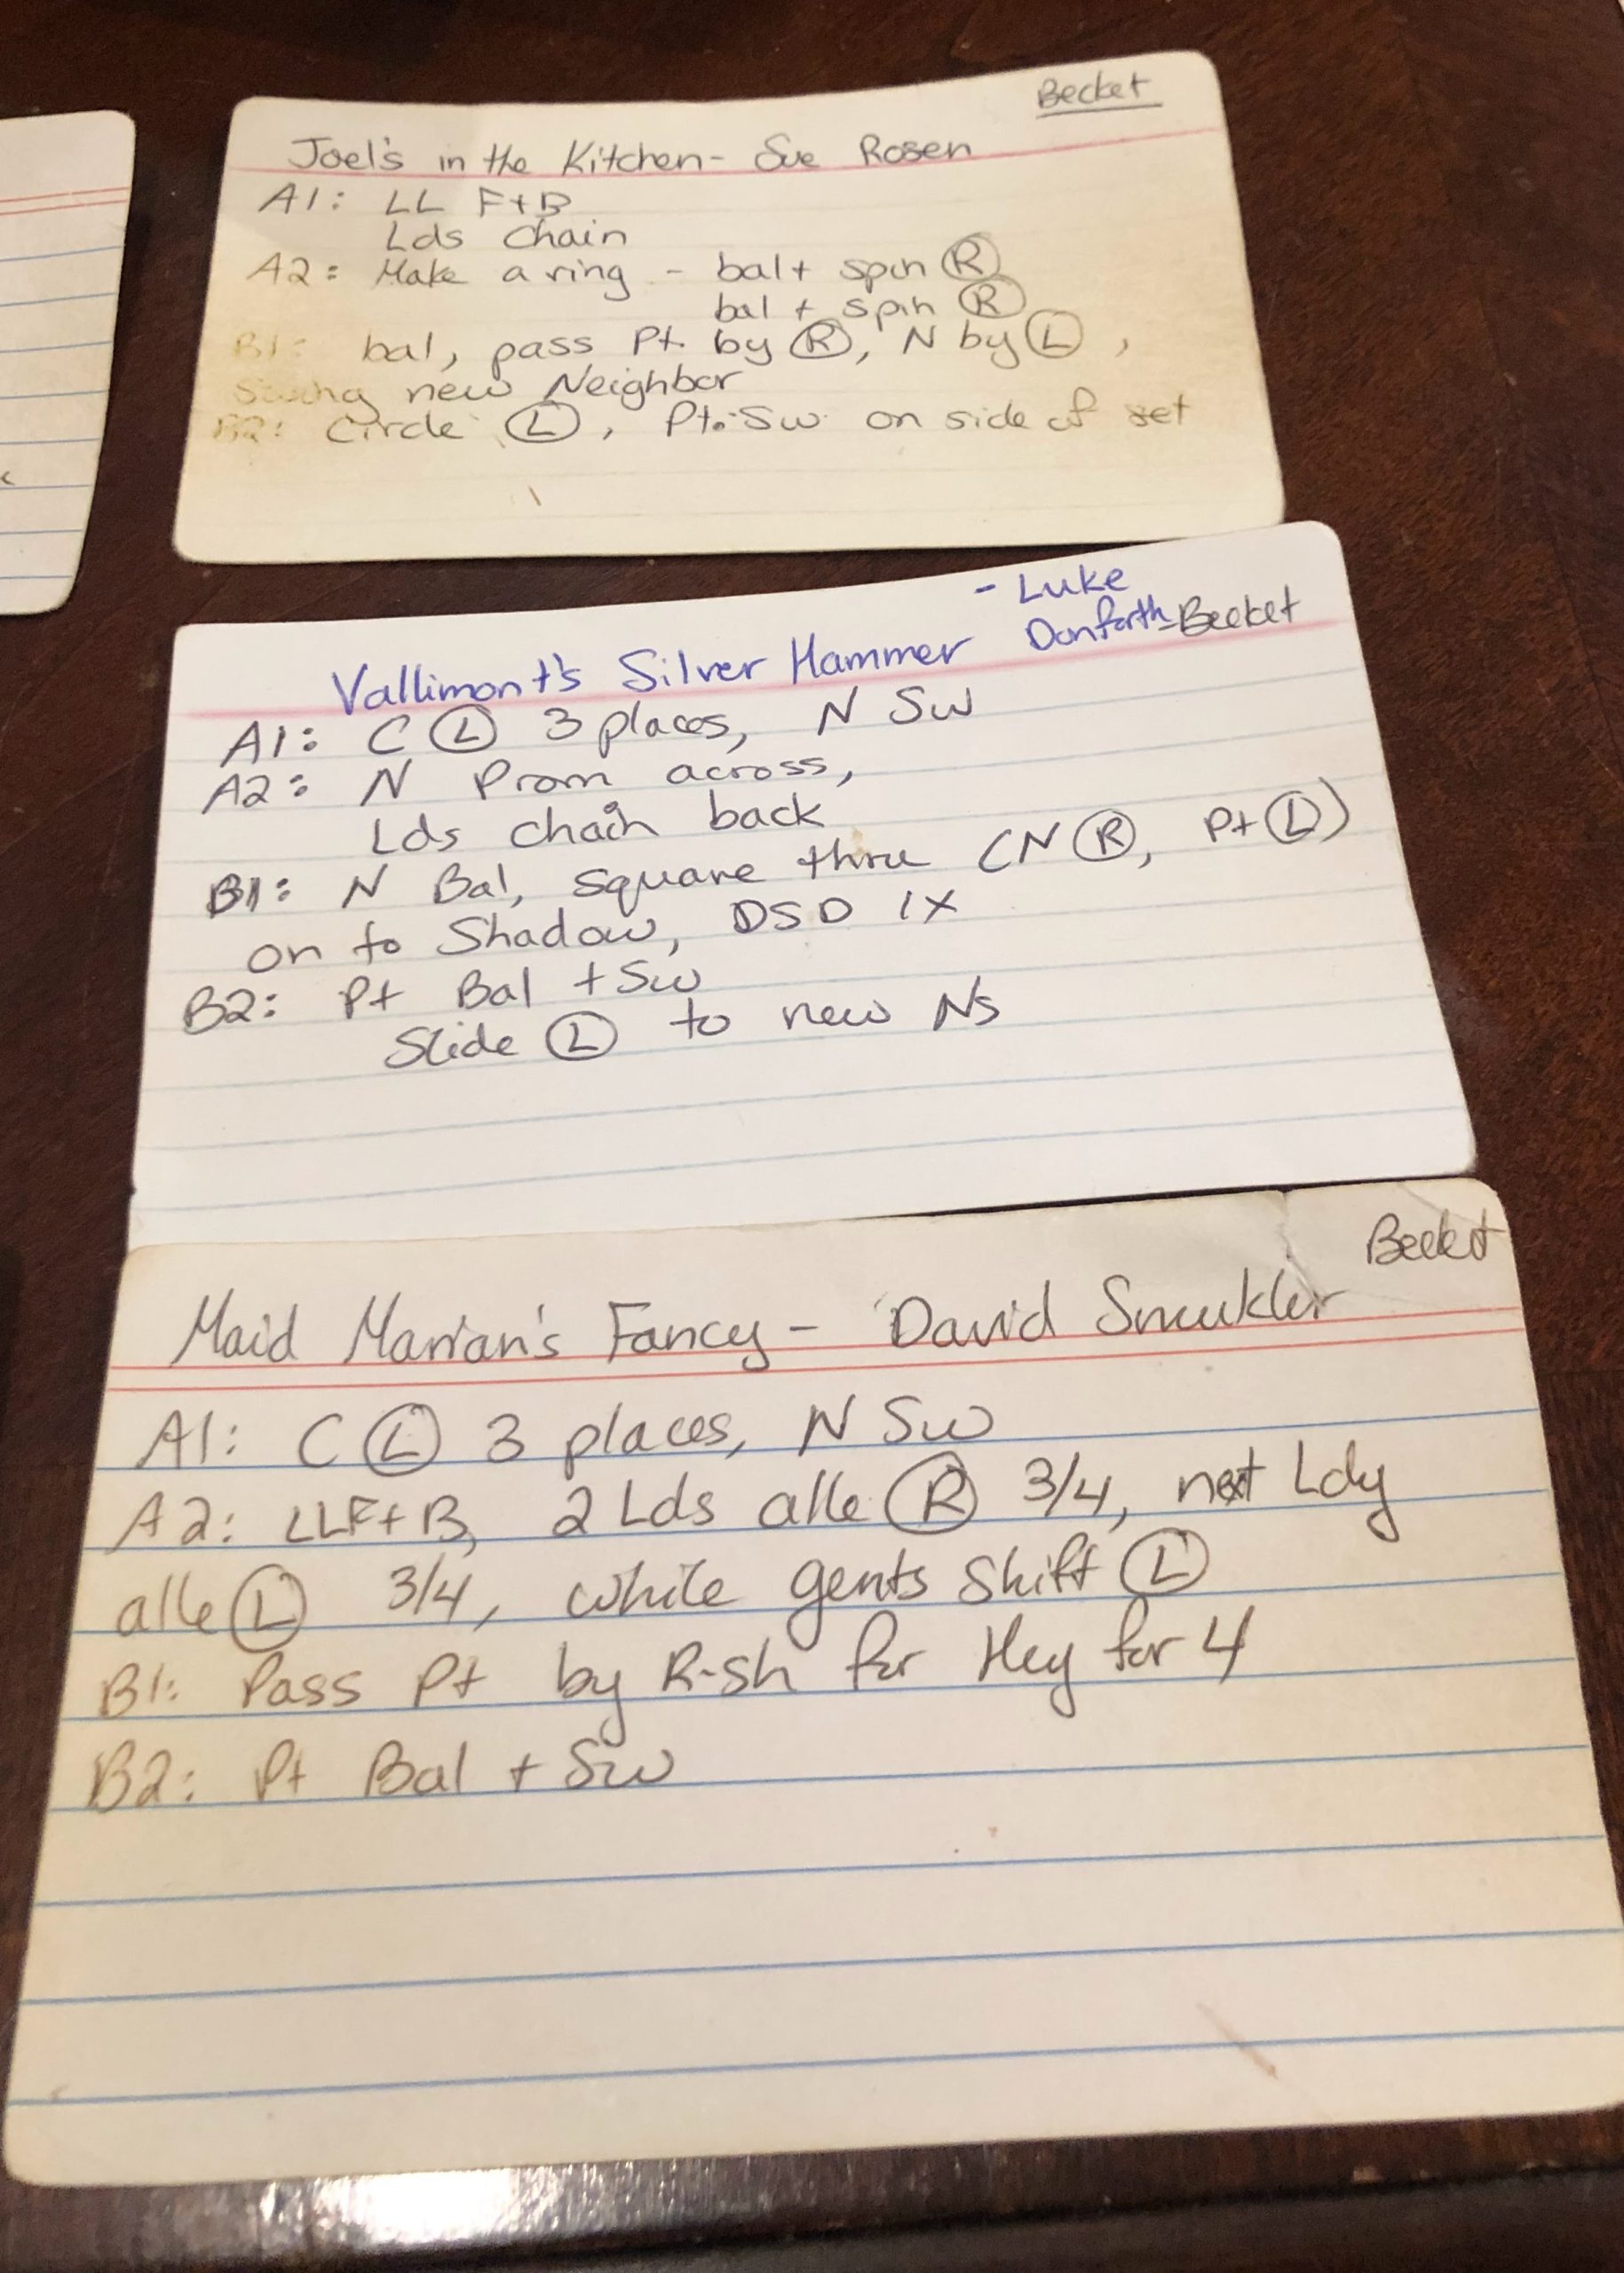 Becket
Joel's in the Kitchen - Sue Rosen
A1: LL F+B
Lds Chain
A2: Make a ring - bal + spin Ⓡ
bal + spin Ⓡ
B1: bal, pass Pt. by Ⓡ, N by Ⓛ,
Swing new Neighbor
B2: Circle Ⓛ, Pt. Sw on side of set
- Luke
Vallimont's Silver Hammer Danforth - Becket
A1: C Ⓛ 3 places, N Sw
A2: N Prom across,
Lds chain back
B1: N Bal, square thru (N Ⓡ, Pt Ⓛ)
on to Shadow, DSD 1x
B2: Pt Bal + Sw
Slide Ⓛ to new Ns
Becket
Maid Marian's Fancy - David Smukler
A1: C Ⓛ 3 places, N Sw
A2: LLF+B, 2 Lds alle Ⓡ 3/4, next Ldy
alle Ⓛ 3/4, while gents shift Ⓛ
B1: Pass Pt by R-sh for Hey for 4
B2: Pt Bal + Sw